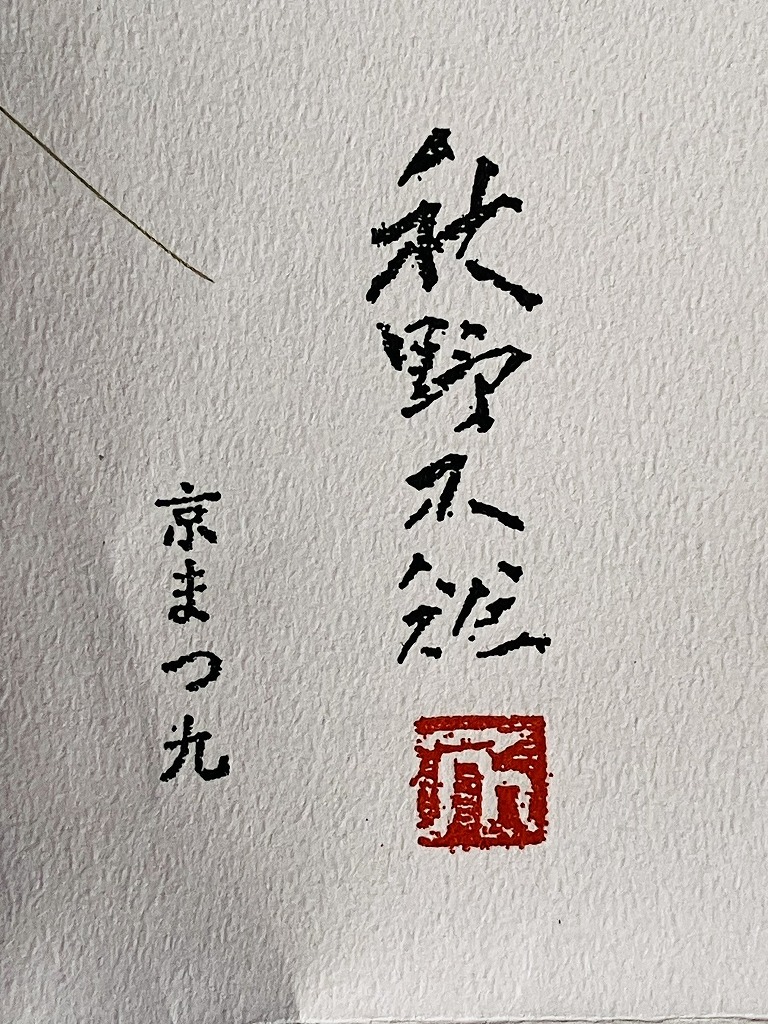 秋野不矩
京まつ九